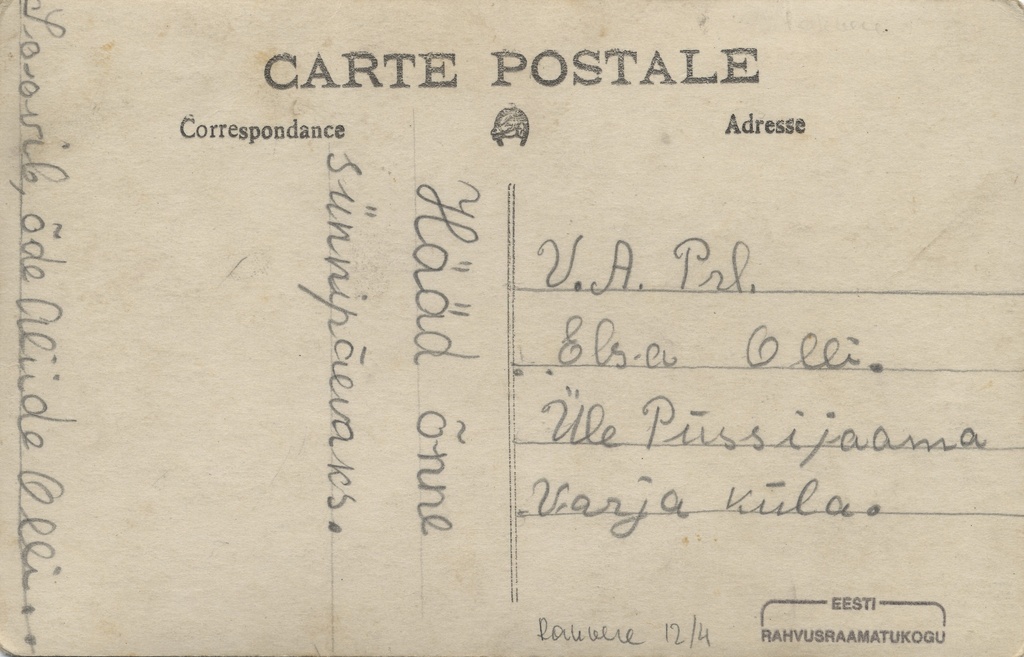 CARTE POSTALE
Correspondance
Adresse
Hääd õnne
sünnipäevaks.
Soovib, õde Aliide Olli..
V. A. Prl.
Elsa Olli.
Üle Püssijaama
Varja küla.
Rakvere 12/4
EESTI
RAHVUSRAAMATUKOGU